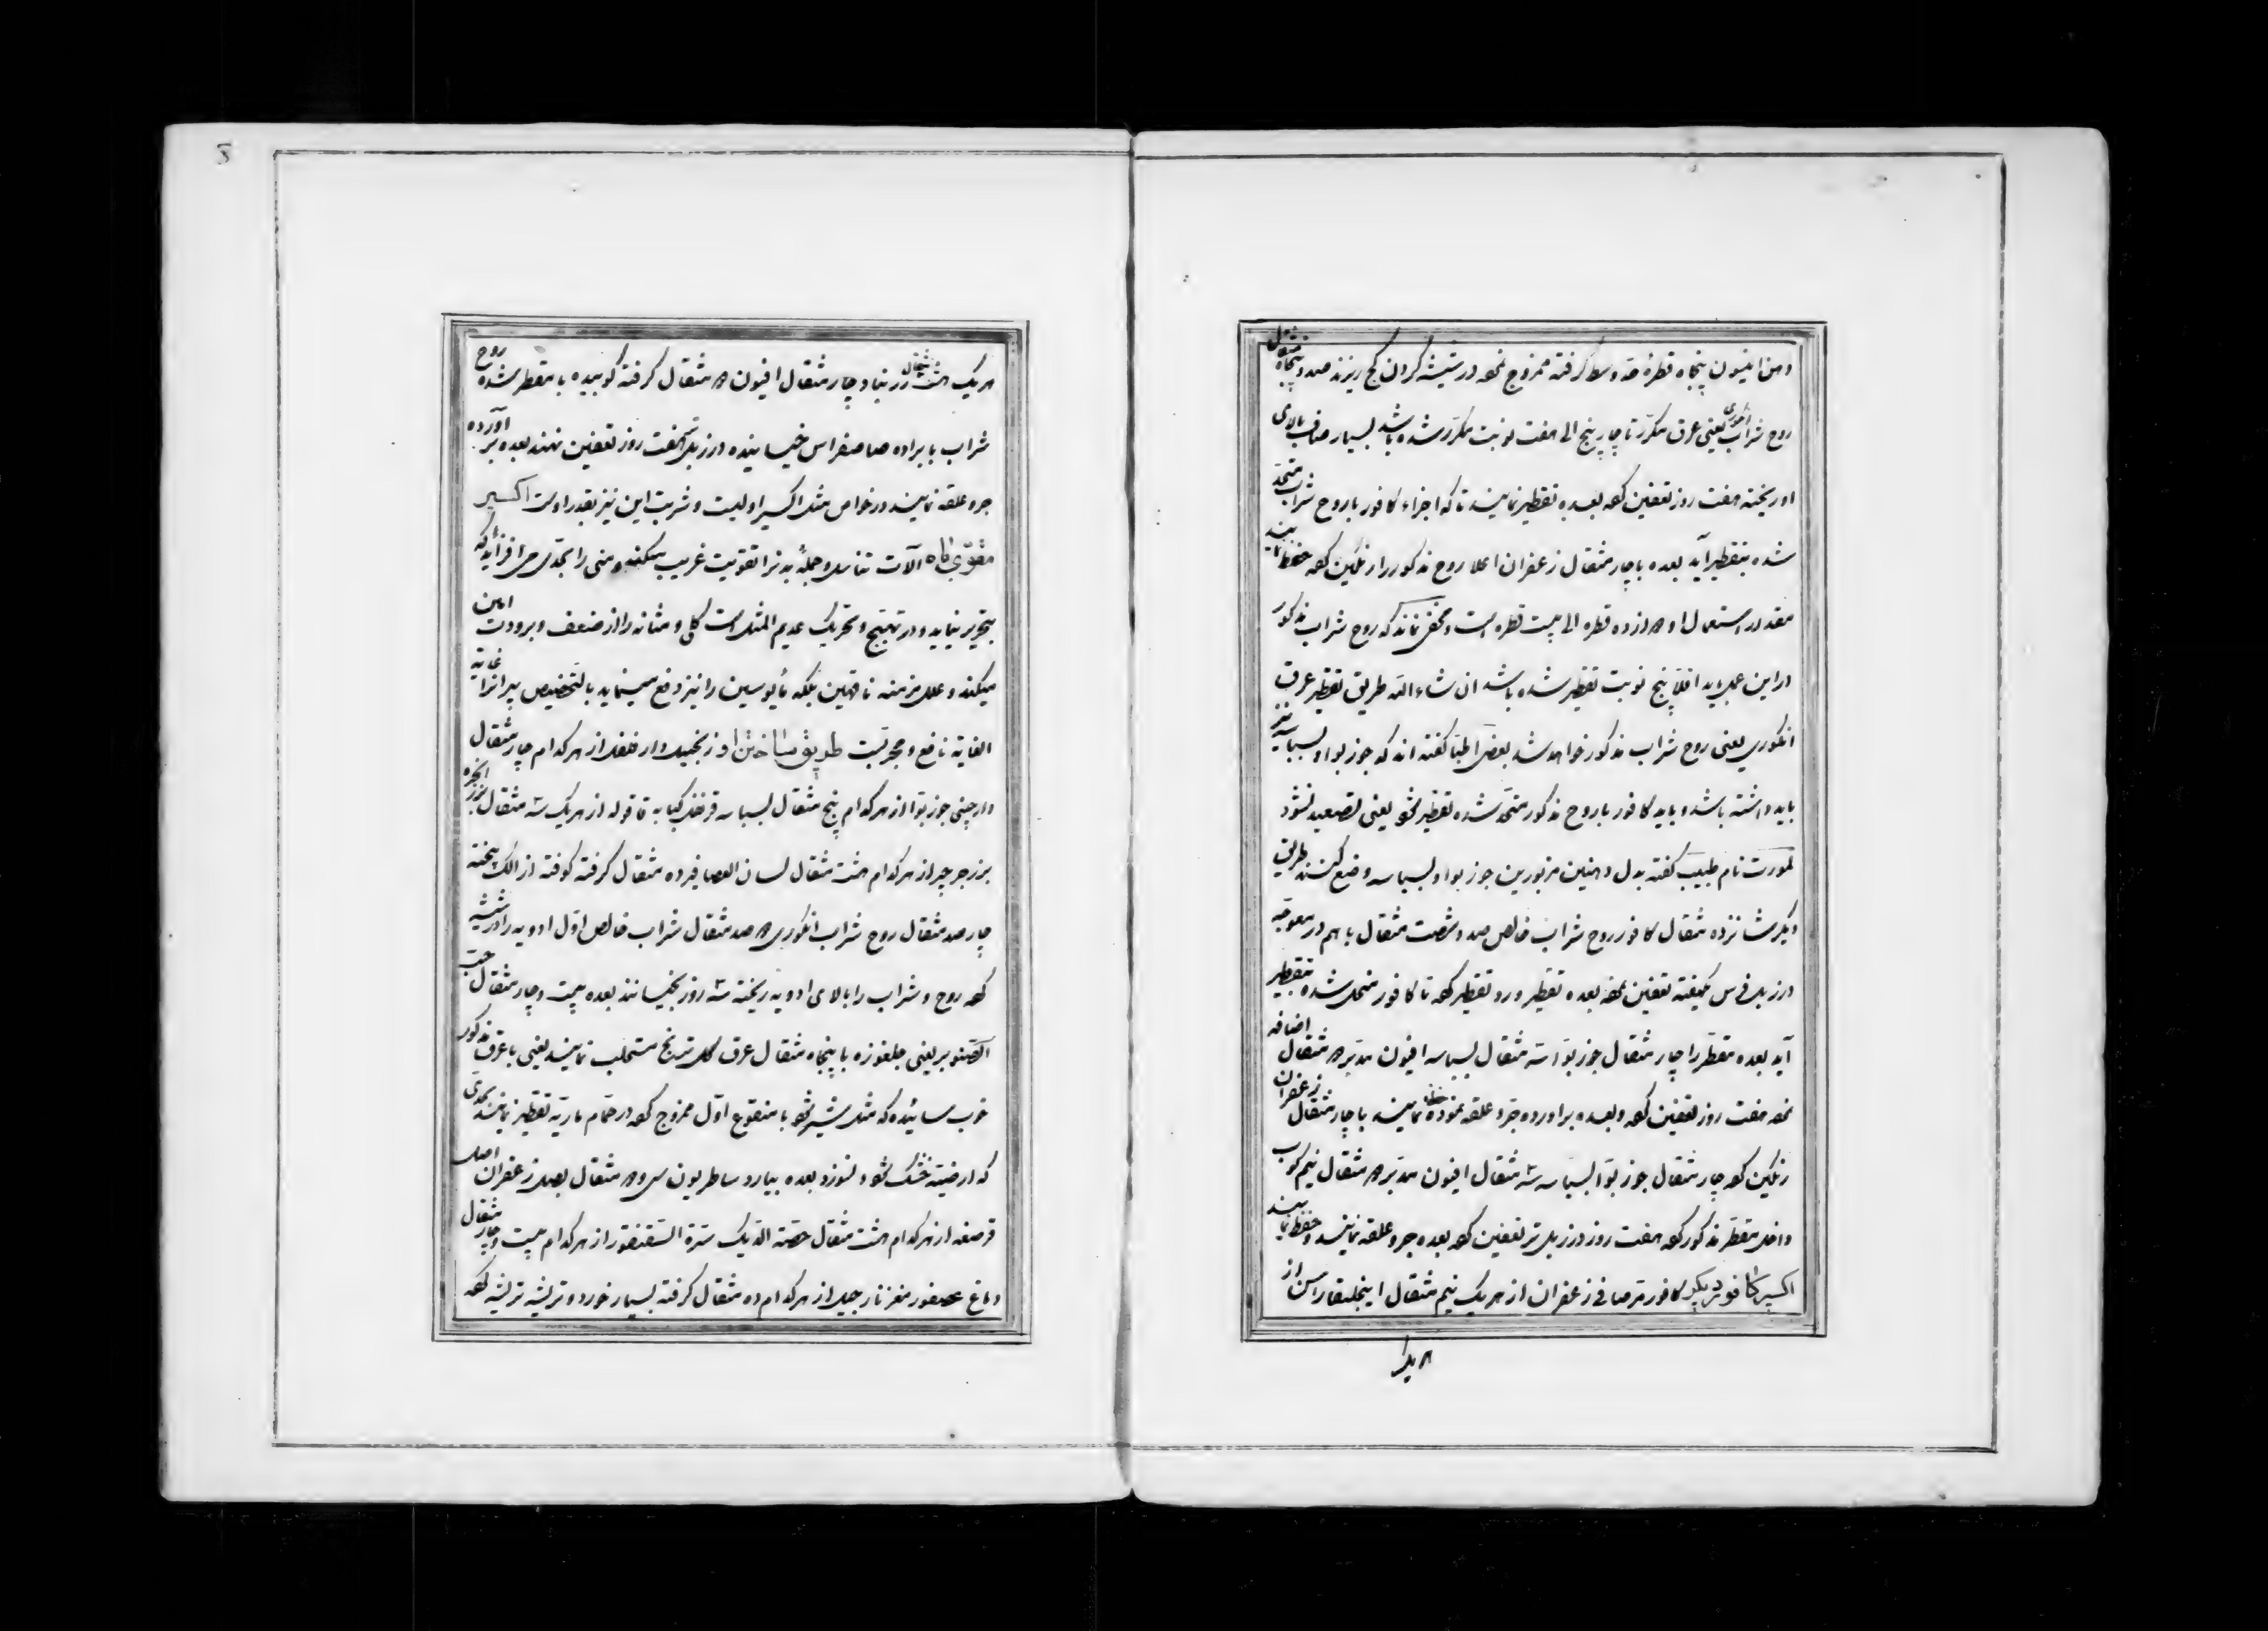 دهن انیسون پنجاه قطره حد وسط گرفته ممزوج نموده در شیشه گردن کج ریزند صد و پنجاه مثقال
روح شراب انگوری یعنی عرق مکرر تا چار پنج الی هفت نوبت مکرر شده باشد بسیار صاف بالای
او ریخته هفت روز تعفین کرده بعده تقطیر نمایند تا که اجزاء کافور با روح شراب متحد
شده بتقطیر آید بعده با چار مثقال زعفران اعلا روح مذکور را رنگین کرده حفظ نمایند
مقدار استعمال او از ده قطره الی بیست قطره است و مخفی نماند که روح شراب مذکور
در این عمل باید اقلا پنج نوبت تقطیر شده باشد ان شاء الله طریق تقطیر عرق
انگوری یعنی روح شراب مذکور خواهد شد بعض اطبا گفته اند که جوز بوا و بسباسه نیز
باید داشته باشد و باید کافور با روح مذکور متحد شده تقطیر شود یعنی تصعید نشود
نام طبیب گفته بدل دهنین مزبورین جوز بوا و بسباسه وضع کنند طریق
دیگر شانزده مثقال کافور روح شراب خالص صد و شصت مثقال با هم در معوجه
در زبل فرس یکهفته تعفین نموده بعده تقطیر و رد تقطیر کرده تا کافور منحل شده بتقطیر
آید بعده مقطر را چار مثقال جوز بوا سه مثقال بسباسه افیون مدبر مثقال اضافه
نموده هفت روز تعفین کرده و بعده بر آورده جر و علقه نموده حفظ نمایند با چار مثقال زعفران
رنگین کرده چار مثقال جوز بوا بسباسه سه مثقال افیون مدبر مثقال نیم کوب
داخل مقطر مذکور کرده هفت روز در زبل تر تعفین کرده بعده جر و علقه نمایند و حفظ نمایند
اکسیر کافور دیگر کافور قرصافی زعفران از هر یک نیم مثقال از
هر یک
هر یک هشت مثقال زرنباد چار مثقال افیون مثقال گرفته کوبیده با مقطر شده روح
شراب با براده خیسانیده در زبل هفت روز تعفین نهند بعده بر آورده
جر و علقه نمایند در خواص مثل اکسیر اولیست و شربت این نیز بقدر اوست اکسیر
مقوی باه آلات تناسل و جمله بدنرا تقویت غریب میکند و منی را بحدی می افزاید که
بتحریر نیاید و در تهییج و تحریک عدیم المثل است کلی و مثانه را از ضعف و برودت امین
میکند و علل مزمنه ناقهین بلکه مأیوسین را نیز دفع مینماید بالتخصیص پیرانرا غایة
الغایة نافع و مجربست طریق ساختن او زنجبیل دار فلفل از هر کدام چار مثقال
دارچینی جوز بوا از هر کدام پنج مثقال بسباسه قرنفل کبابه قاقوله از هر یک سه مثقال بزر انجره
بزر جرجیر از هر کدام هشت مثقال لسان العصافیر ده مثقال گرفته کوفته از الک بیخته
چار صد مثقال روح شراب انگوری صد مثقال شراب خالص اول ادویه را در شیشه
کرده روح و شراب را بالای ادویه ریخته سه روز بخیسانند بعده بیست و چار مثقال حب
الصنوبر یعنی جلغوزه با پنجاه مثقال عرق گل ترنج مستحلب نمایند یعنی با عرق مذکور
خوب سائیده که مثل شیر شود با منقوع اول ممزوج کرده در حمام ماریه تقطیر نمایند بحدی
که ارضیته خشک شود و نسوزد بعده بیارد ساطریون سی و مثقال بصل زعفران اصل
قرصعنه از هر کدام هشت مثقال خصیة الدیک سرة السقنقور از هر کدام بیست و چار مثقال
دماغ عصفور مغز نارجیل از هر کدام ده مثقال گرفته بسیار خورد و تریشه تریشه کرده